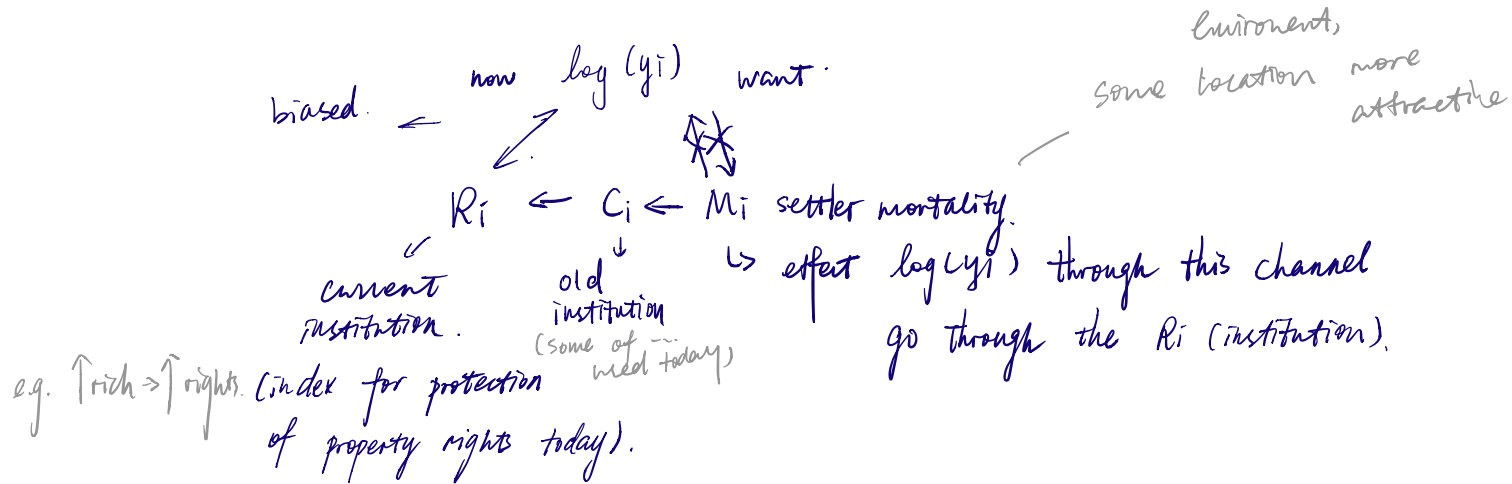 Enviroment,
some location more
attractive
now log(yi) want.
biased. ←
Ri ← Ci ← Mi settler mortality.
↳ effect log(yi) through this channel
go through the Ri (institution).
current
institution.
old
institution
(some of ... used today)
e.g. ↑rich → ↑rights.
(index for protection
of property rights today).